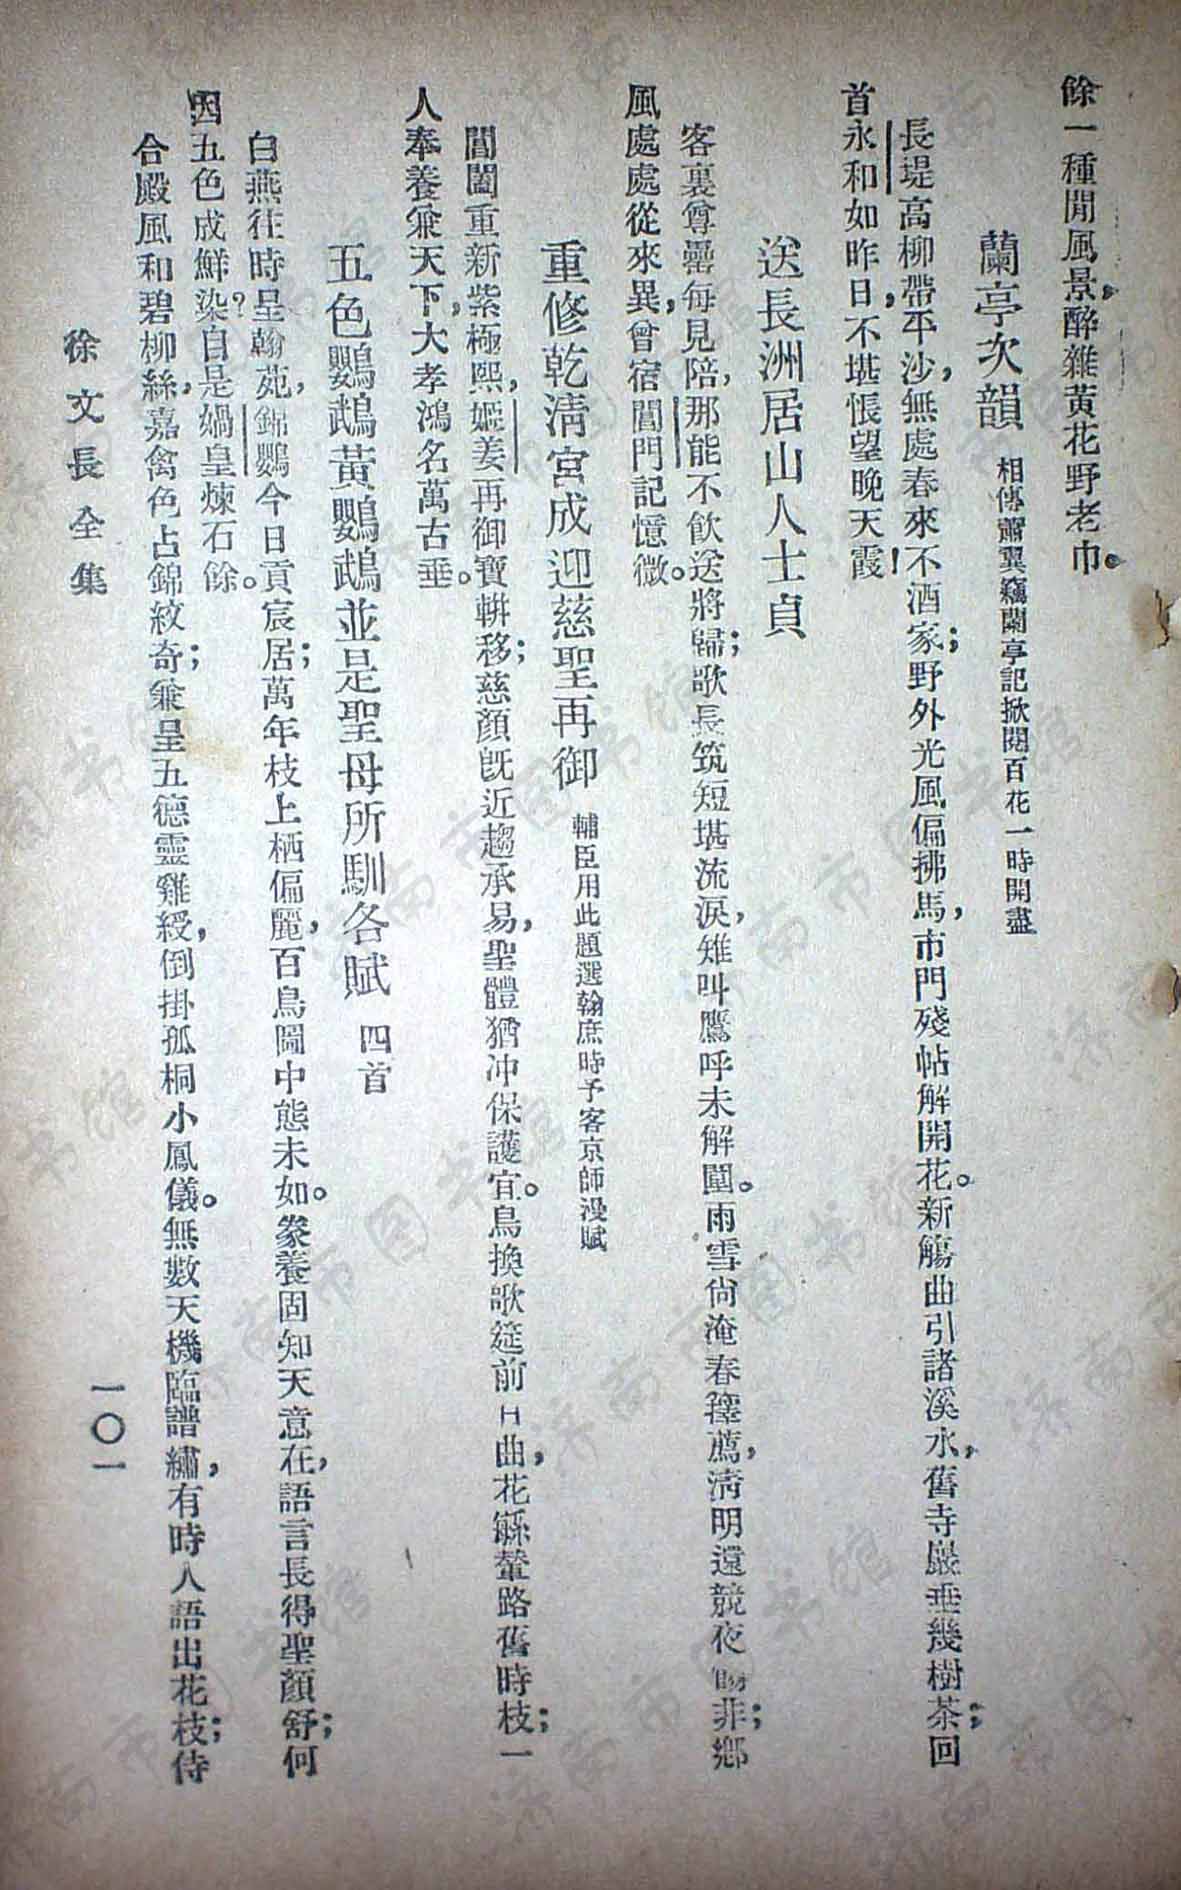 餘一種閒風景，醉雜黃花野老巾。
蘭亭次韻 相傳蕭翼竊蘭亭記掀閱百花一時開盡
長堤高柳帶平沙，無處春來不酒家；野外光風偏拂馬，市門殘帖解開花。新觴曲引諸溪水，舊寺巖垂幾樹茶；回
首永和如昨日，不堪悵望晚天霞！
送長洲居山人士貞
客裏尊罍每見陪，那能不飲送將歸；歌長筑短堪流淚，雉叫鷹呼未解圍。雨雪尙淹春籜薦，淸明還競夜 非；鄉
風處處從來異，曾宿閶門記憶微。
重修乾淸宮成迎慈聖再御 輔臣用此題選翰庶時予客京師漫賦
閶闔重新紫極熙，嫄姜再御寶輧移；慈顏旣近趨承易，聖體猶冲保護宜。鳥換歌筵前日曲，花 輦路舊時枝；一
人奉養兼天下，大孝鴻名萬古垂。
五色鸚鵡黃鸚鵡並是聖母所馴各賦 四首
白燕往時呈翰苑，錦鸚今日貢宸居；萬年枝上栖偏麗，百鳥圖中態未如。豢養固知天意在，語言長得聖顏舒；何
因五色成鮮染？自是媧皇煉石餘。
合殿風和碧柳絲，嘉禽色占錦紋奇；兼呈五德靈雞綬，倒掛孤桐小鳳儀。無數天機臨譜繡，有時人語出花枝；侍
徐文長全集
一〇一
济南市图书馆